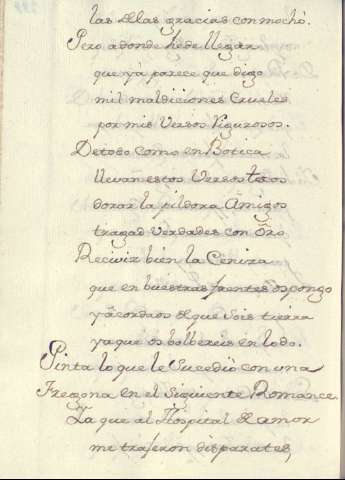 las de las gracias con mochó.
Pero adonde he de llegar
que ya parece que digo
mil maldiciones Crueles
por mis Versos Rigurosos.
De todo como en Botica
llevan estos Versos todos
dorar la pildora Amigos
tragad verdades con Oro
Recivir bien la Ceniza
que en buestras frentes os pongo
y acordaos de que sois tierra
ya que os bolbereis en lodo.
Pinta lo que le Sucedió con una
Fregona en el Siguiente Romance
La que al Hospital de amor
me trajeron disparates,